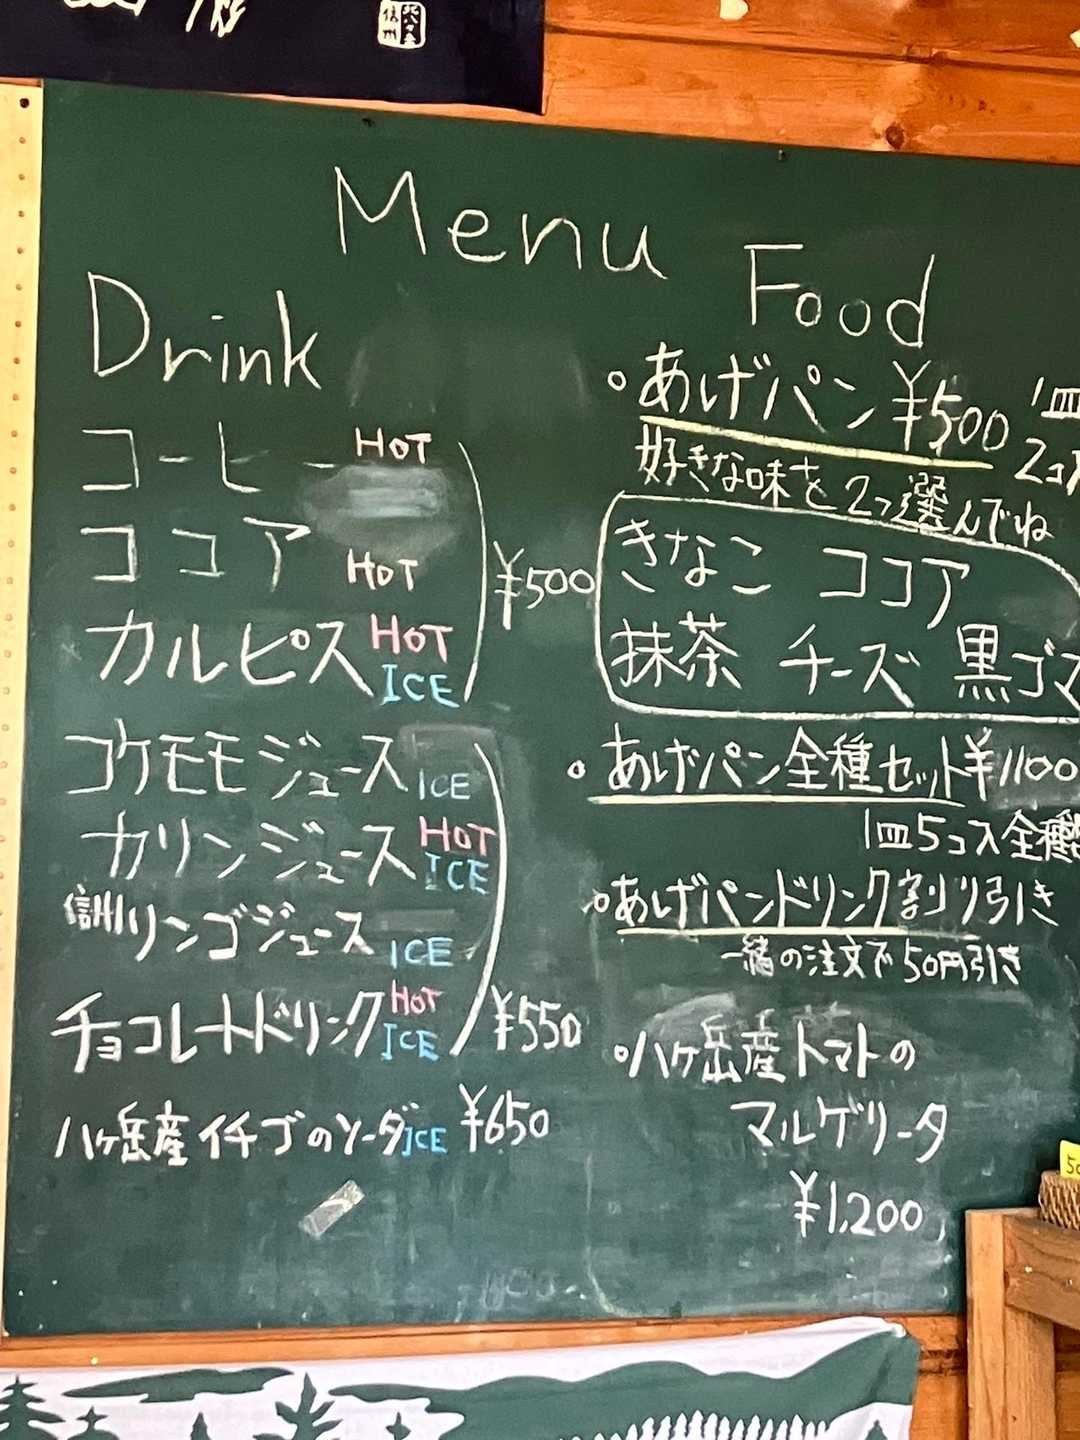 北八ヶ岳
信州
Menu
Drink
コーヒー HOT
ココア HOT
カルピス HOT ICE
¥500
コケモモジュース ICE
カリンジュース HOT ICE
信州リンゴジュース ICE
チョコレートドリンク HOT ICE
¥550
八ヶ岳産イチゴのソーダ ICE ¥650
Food
○あげパン ¥500 1皿
2コ入
好きな味を2つ選んでね
きなこ ココア
抹茶 チーズ 黒ゴマ
○あげパン全種セット ¥1100
1皿5コ入全種
○あげパンドリンク割り引き
一緒の注文で50円引き
○八ヶ岳産トマトの
マルゲリータ
¥1,200